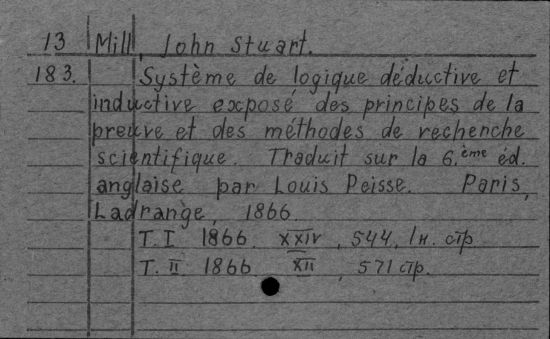 13 Mill, John Stuart.
183. Système de logique déductive et
inductive exposé des principes de la
preuve et des méthodes de recherche
scientifique. Traduit sur la 6.ème éd.
anglaise par Louis Peisse. Paris,
Ladrange, 1866.
T. I 1866. XXIV, 544, 1н. стр
T. II 1866. XII, 571 стр.